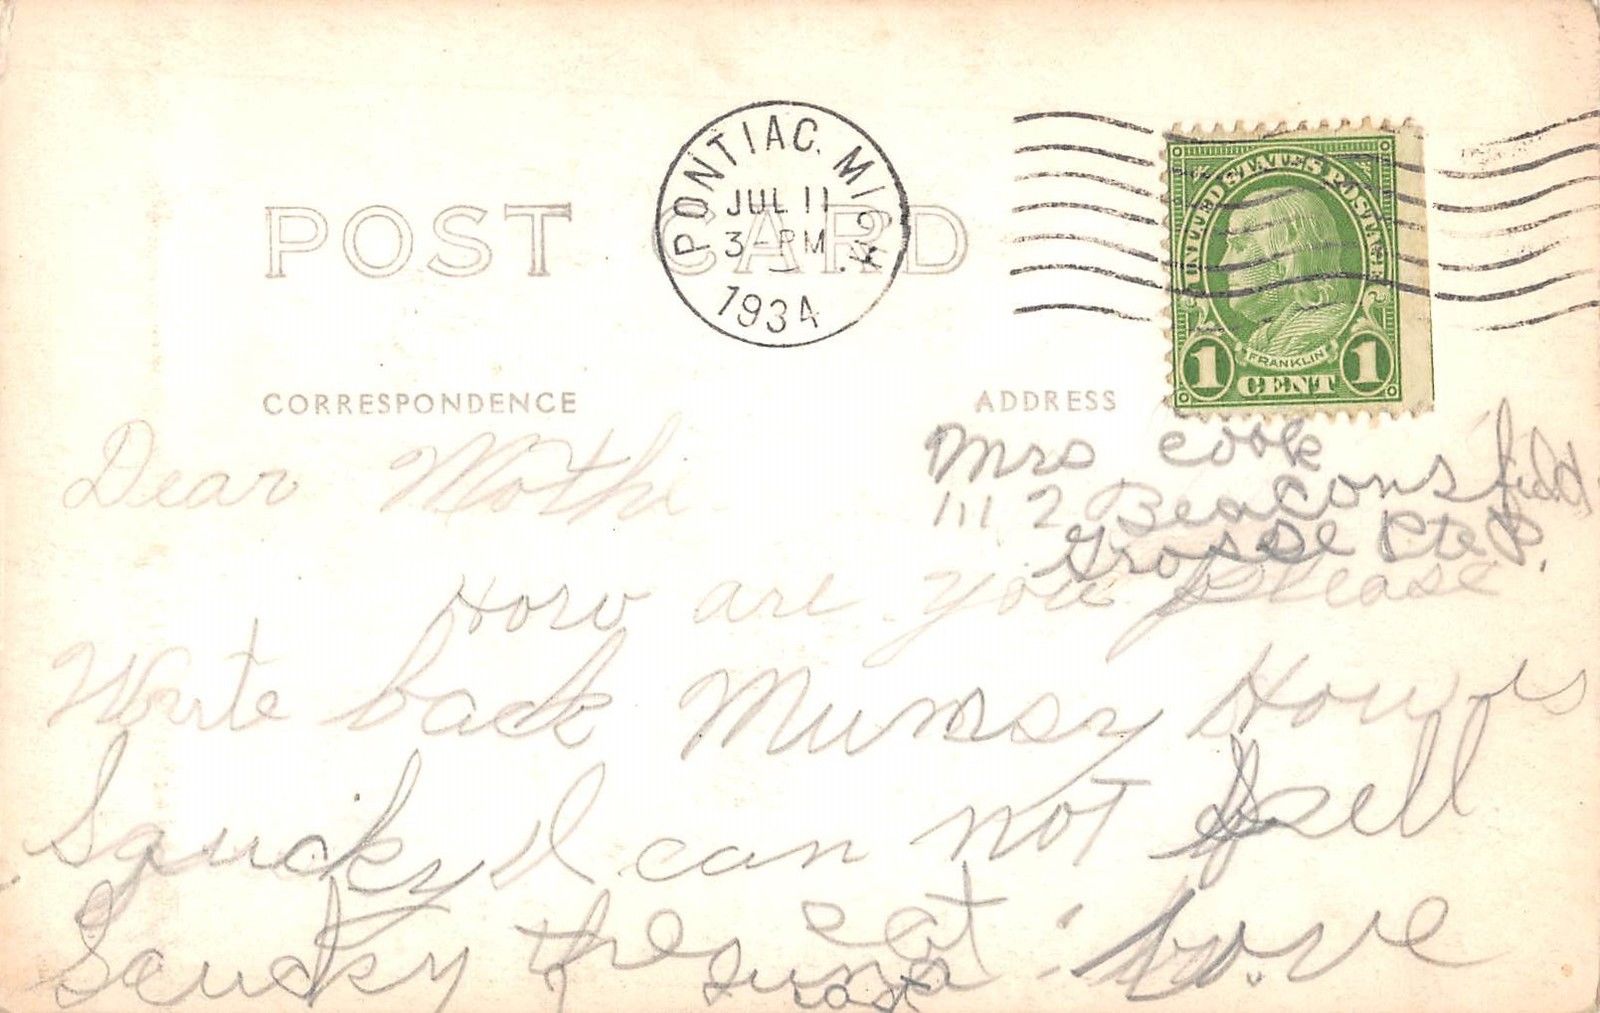 PONTIAC, MICH.
JUL 11
3-PM
1934
UNITED STATES POSTAGE
FRANKLIN
1 CENT 1
POST CARD
CORRESPONDENCE
ADDRESS
Mrs Cook
1112 Beaconsfield
Grosse Pte P.
Dear Mothe
How are you please
Write back Mumsy How is
Squcky I can not spell
Squcky the cat. Love